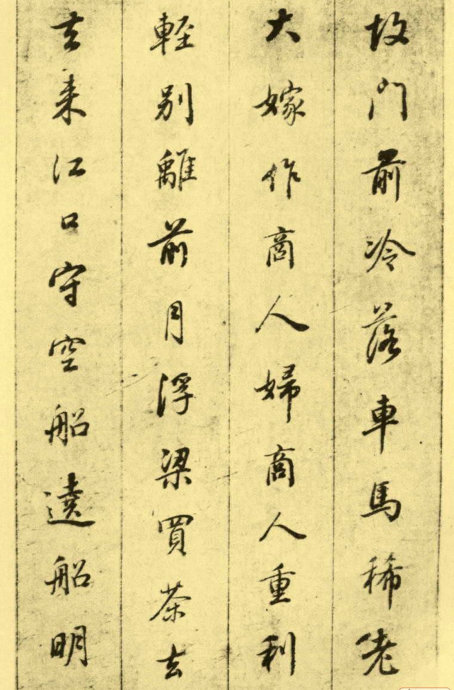 故門前冷落車馬稀老
大嫁作商人婦商人重利
輕別離前月浮梁買茶去
去来江口守空船遶船明